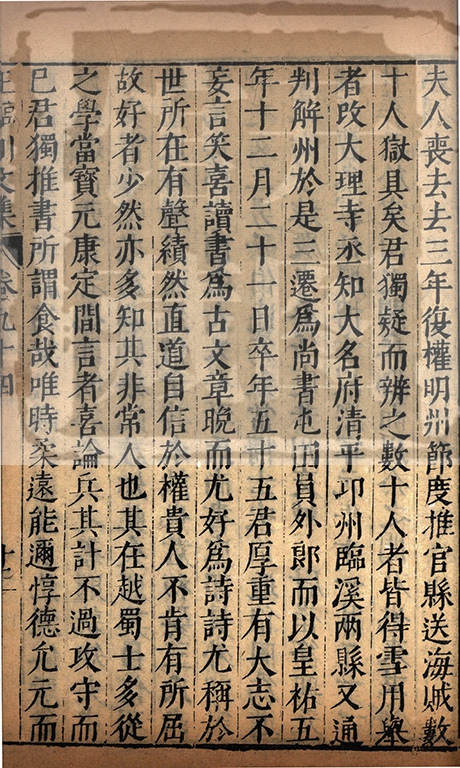 夫人喪去去三年復權明州節度推官縣送海賊數
十人獄具矣君獨疑而辨之數十人者皆得雪用舉
者改大理寺丞知大名府清平卭州臨溪兩縣又通
判解州於是三遷爲尚書屯田員外郎而以皇祐五
年十二月二十一日卒年五十五君厚重有大志不
妄言笑喜讀書爲古文章晚而尤好爲詩詩尤稱於
世所在有聲績然直道自信於權貴人不肯有所屈
故好者少然亦多知其非常人也其在越蜀士多從
之學當寶元康定間言者喜論兵其計不過攻守而
巳君獨推書所謂食哉唯時柔遠能邇惇德允元而
王臨川文集 卷九十四